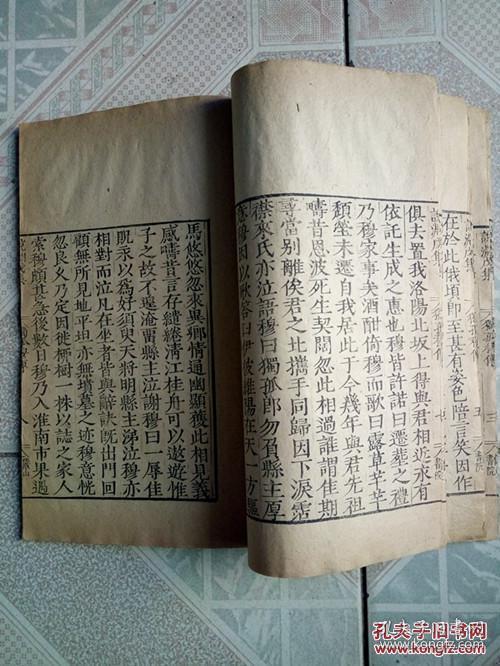 在於此俄頃即至甚有姿色陪言笑因作
俱夫置我洛陽北坂上得與君相近永有
依託生成之惠也穆皆許諾曰遷葬之禮
乃穆家事矣酒酣倚穆而歌曰露草芊芊
頹塋未遷自我居此于今幾年與君先祖
疇昔恩波死生契闊忽此相過誰謂佳期
尋當別離俟君之北攜手同歸因下淚霑
襟來氏亦泣語穆曰獨孤郎勿負縣主厚
意穆因以歌答曰伊彼維陽在天一方驅
馬悠悠忽來異鄉情通幽顯獲此相見義
感疇昔言存繾綣清江桂舟可以遨遊惟
子之故不遑淹留縣主泣謝穆曰一辱佳
貺永以爲好須臾天將明縣主涕泣穆亦
相對而泣凡在坐者皆與辭訣既出門回
顧無所見地平坦亦無墳墓之迹穆意恍
忽良久乃定因徙栁樹一株以誌之家人
索穆頗甚急後數日穆乃入淮南市果遇
孔夫子旧书网
www.kongfz.com